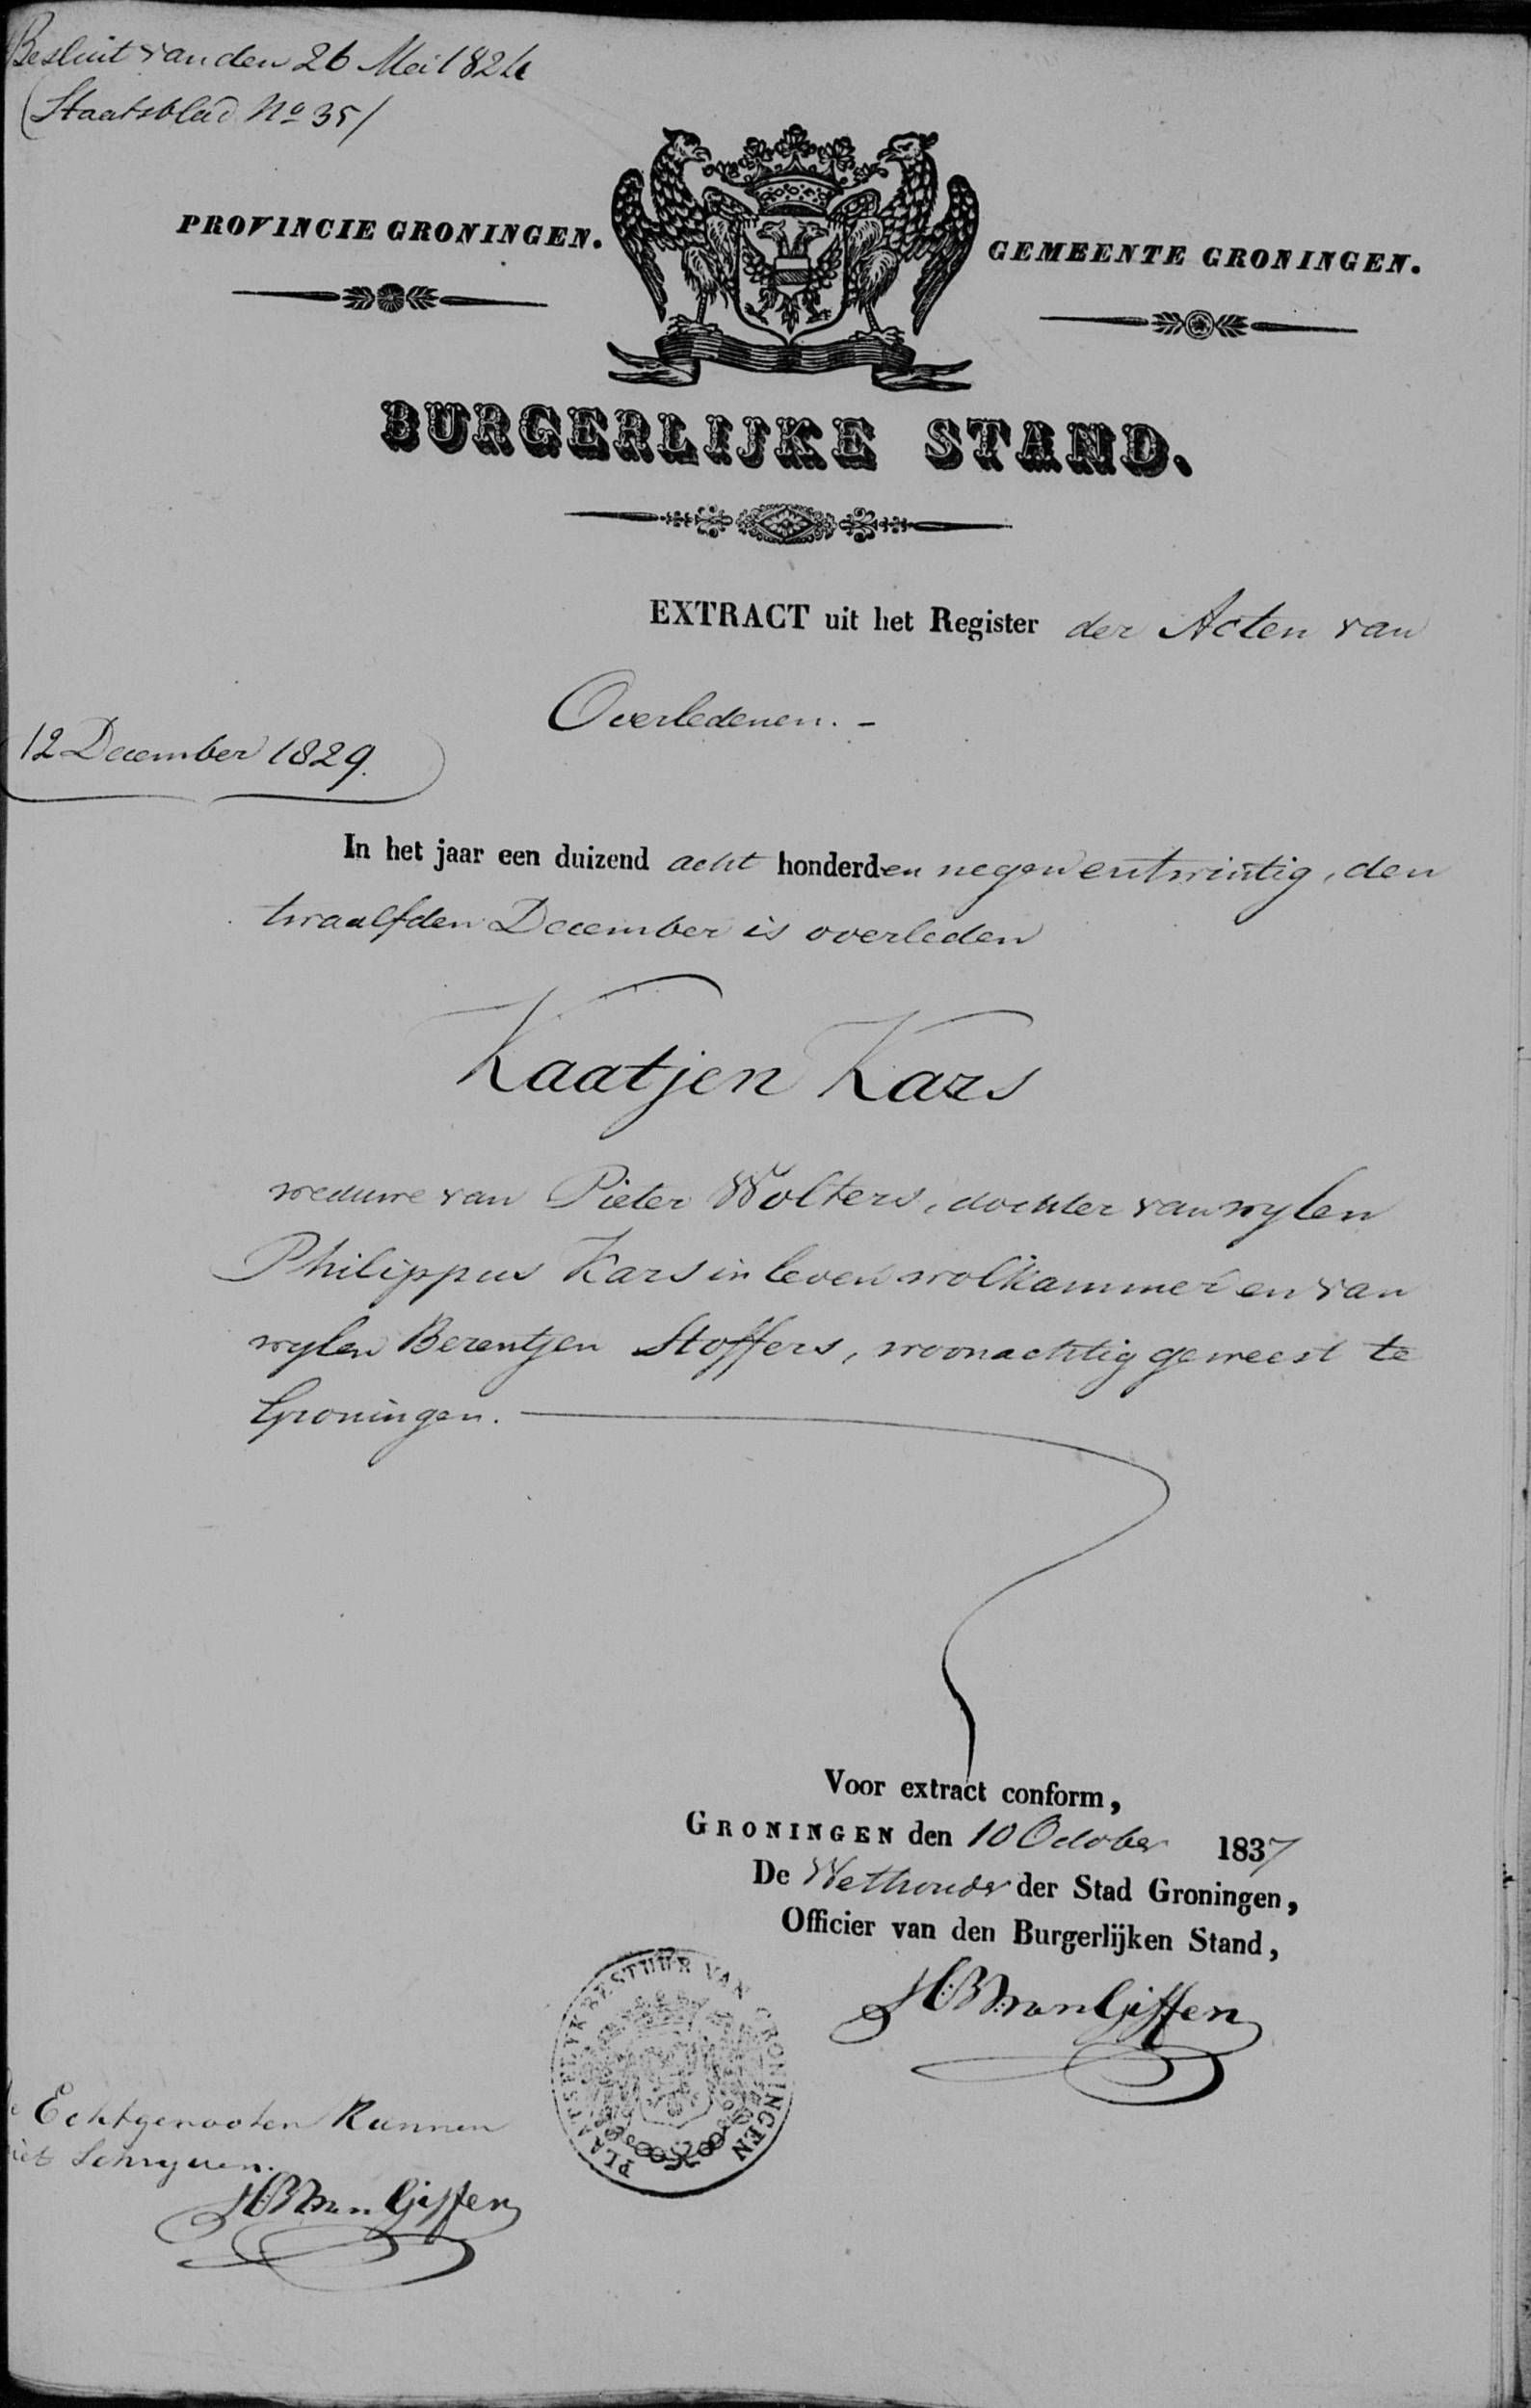 Besluit van den 26 Mei 1824
(Staatsblad No 35/
PROVINCIE GRONINGEN.
GEMEENTE GRONINGEN.
BURGERLIJKE STAND.
EXTRACT uit het Register der Acten van
Overledenen. -
12 December 1829.
In het jaar een duizend acht honderd en negen en twintig, den
twaalfden December is overleden
Kaatjen Kars
weduwe van Pieter Wolters, dochter van wylen
Philippus Kars in leven wolkammer en van
wylen Berentjen Stoffers, woonachtig geweest te
Groningen.
Voor extract conform,
GRONINGEN den 10 October 1837
De Wethouder der Stad Groningen,
Officier van den Burgerlijken Stand,
H:B:van Giffen
PLAATSELYK BESTUUR VAN GRONINGEN
Echtgenooten Kunnen
niet Schryven.
H:B:van Giffen